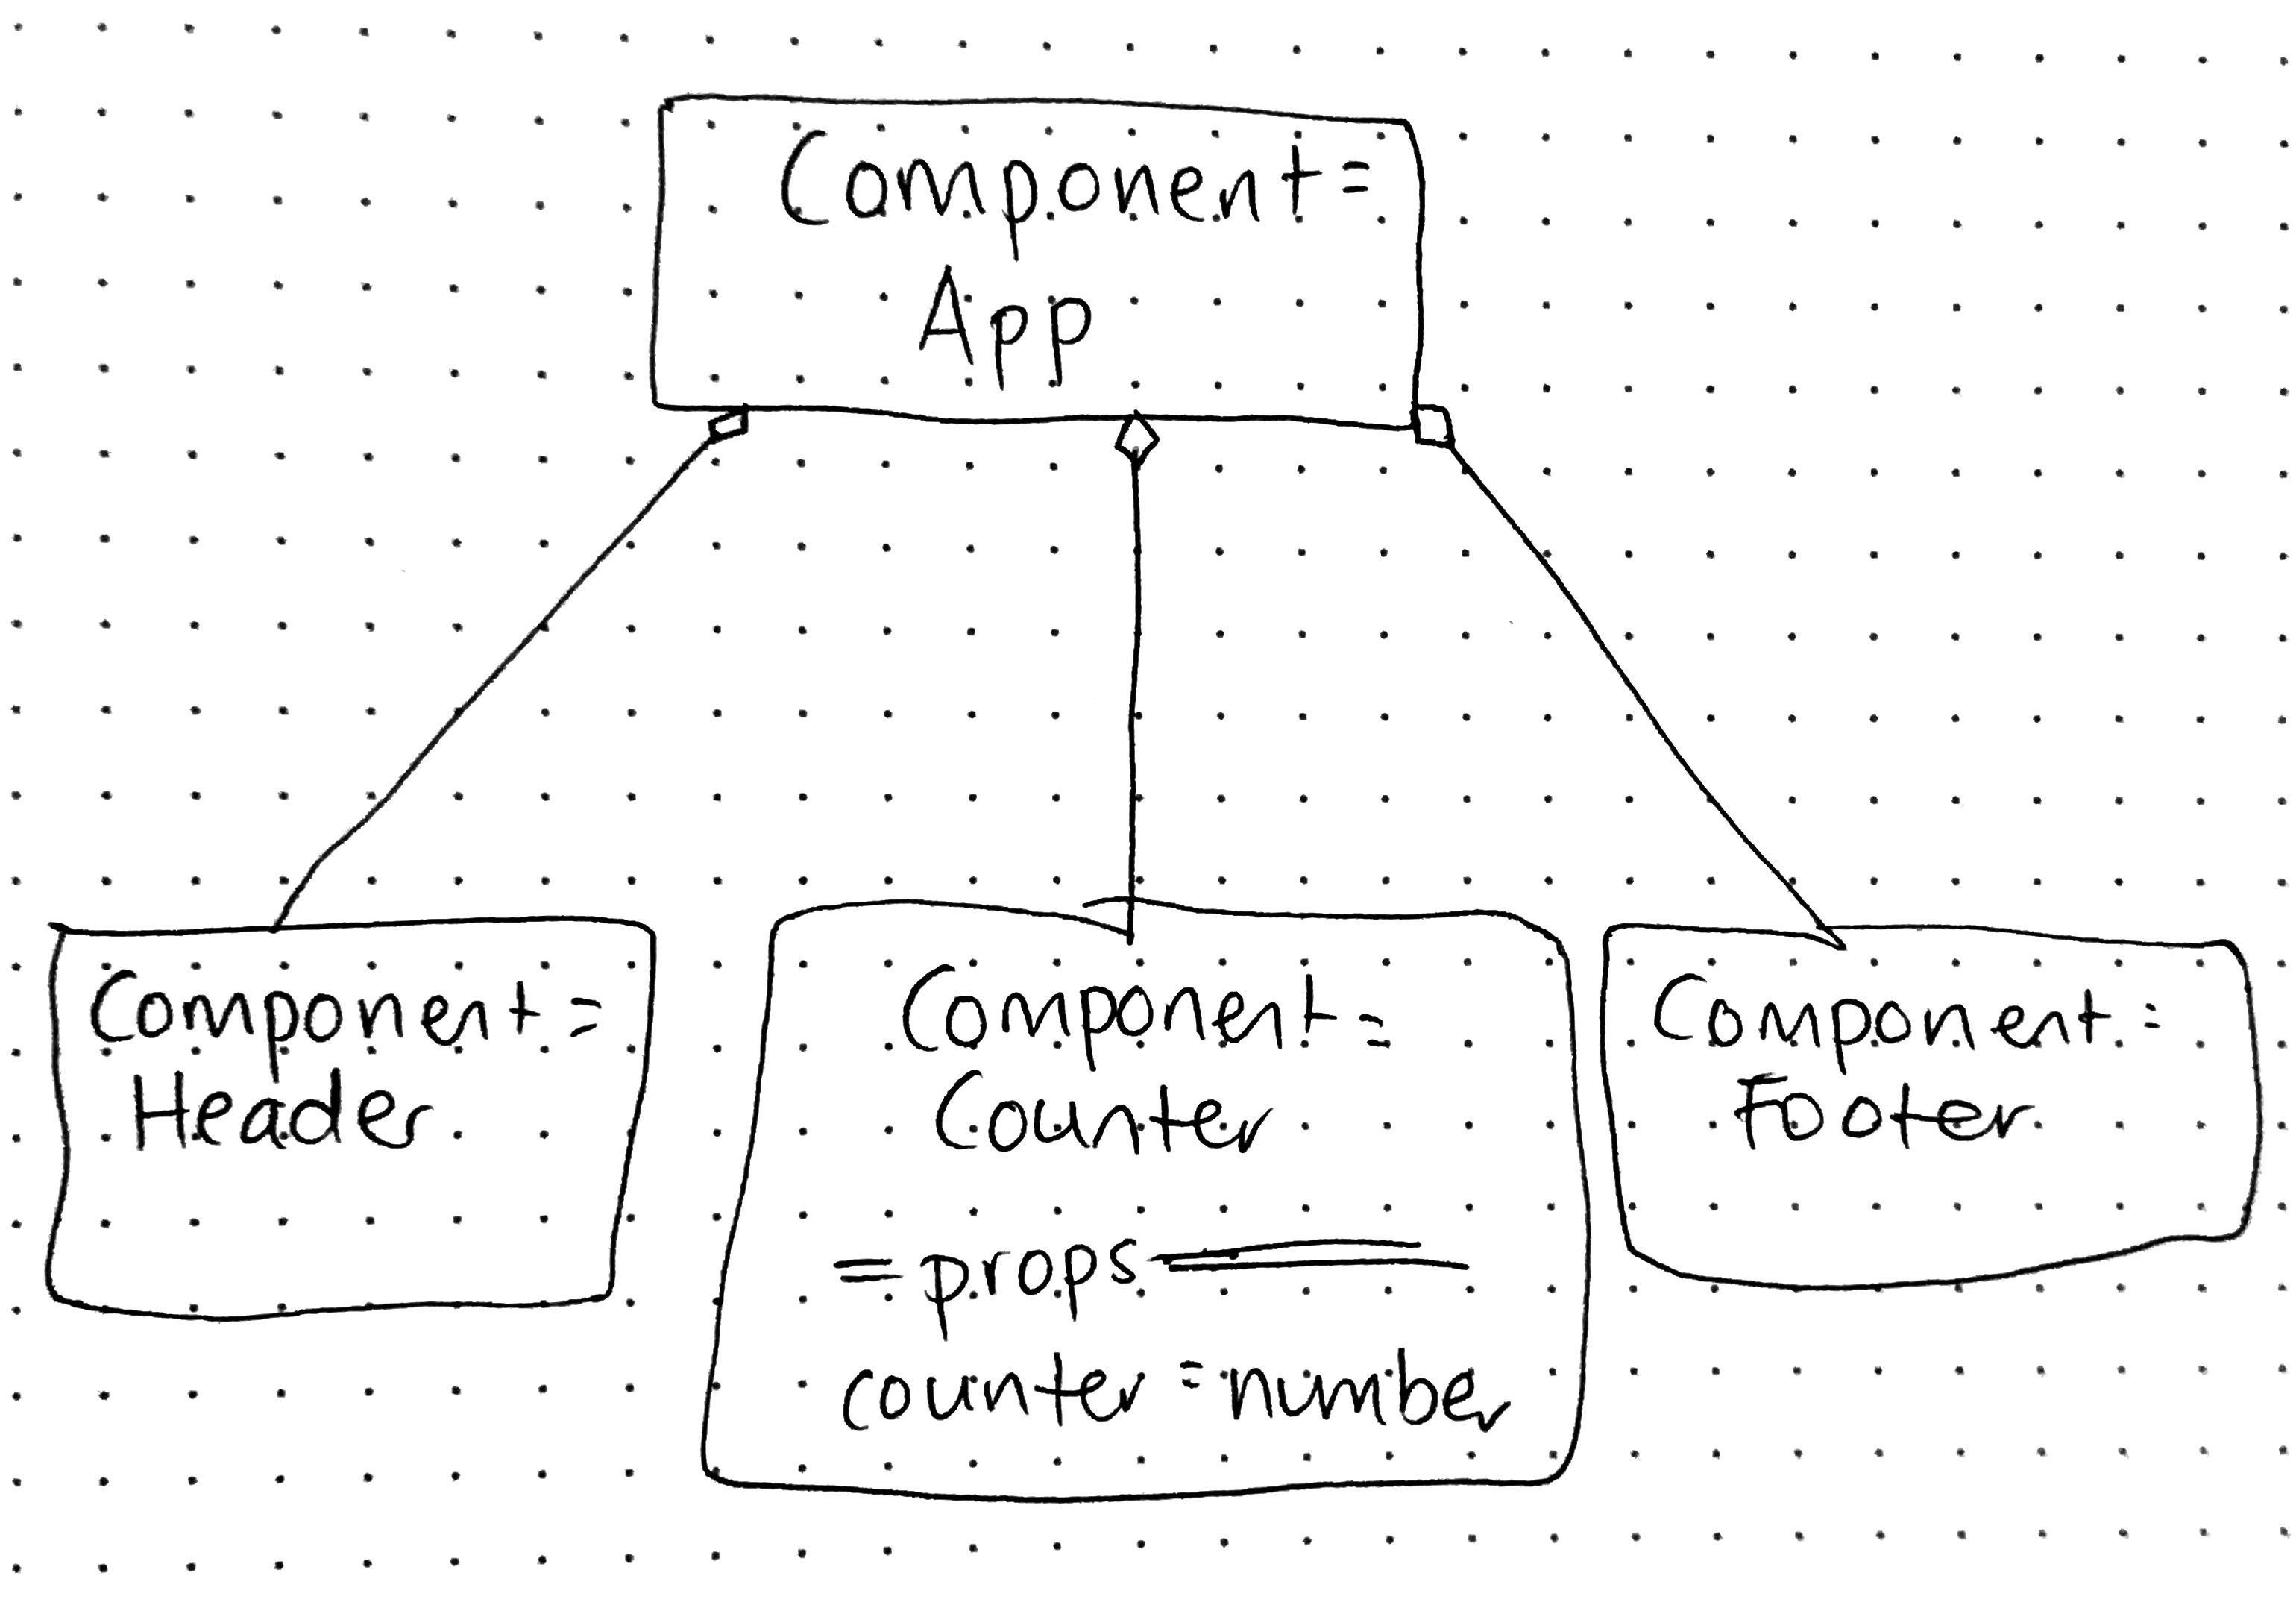 Component =
App
Component =
Header
Component =
Counter
= props =
counter = number
Component =
Footer